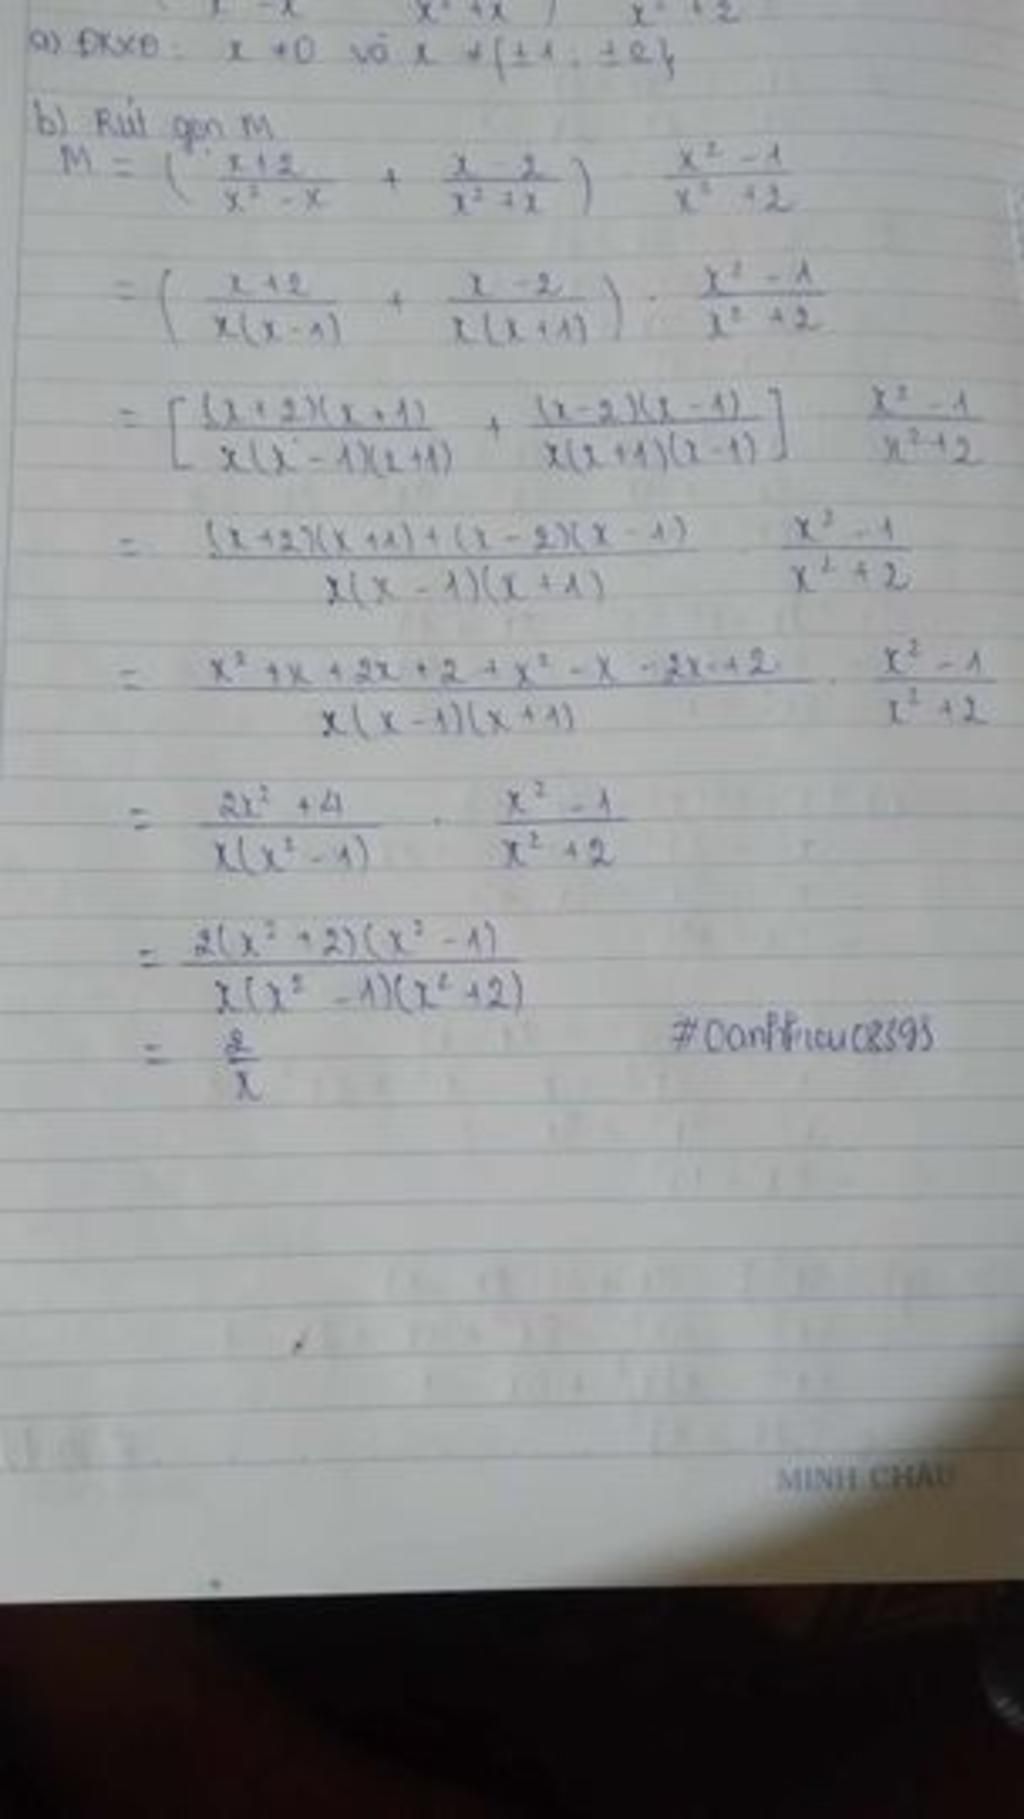 x² - x     x² + x )     x² + 2
a) ĐKXĐ: x ≠ 0 và x ≠ {±1; ±2}
b) Rút gọn M
M = ( (x+2)/(x² - x) + (x - 2)/(x² + x) ) (x² - 1)/(x² + 2)
= ( (x+2)/(x(x-1)) + (x-2)/(x(x+1)) ) . (x² - 1)/(x² + 2)
= [ (x+2)(x+1)/(x(x-1)(x+1)) + (x-2)(x-1)/(x(x+1)(x-1)) ] (x² - 1)/(x² + 2)
= ((x+2)(x+1) + (x-2)(x-1))/(x(x-1)(x+1)) . (x² - 1)/(x² + 2)
= (x² + x + 2x + 2 + x² - x - 2x + 2)/(x(x-1)(x+1)) . (x² - 1)/(x² + 2)
= (2x² + 4)/(x(x² - 1)) . (x² - 1)/(x² + 2)
= 2(x² + 2)(x² - 1)/(x(x² - 1)(x² + 2))
= 2/x
MINH CHÂU